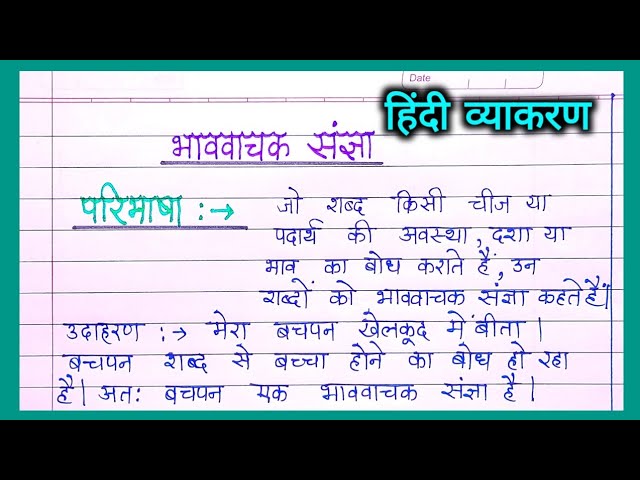 Date
हिंदी व्याकरण
भाववाचक संज्ञा
परिभाषा :→ जो शब्द किसी चीज या
पदार्थ की अवस्था, दशा या
भाव का बोध कराते हैं, उन
शब्दों को भाववाचक संज्ञा कहते हैं।
उदाहरण :→ मेरा बचपन खेलकूद में बीता।
बचपन शब्द से बच्चा होने का बोध हो रहा
है। अतः बचपन एक भाववाचक संज्ञा है।